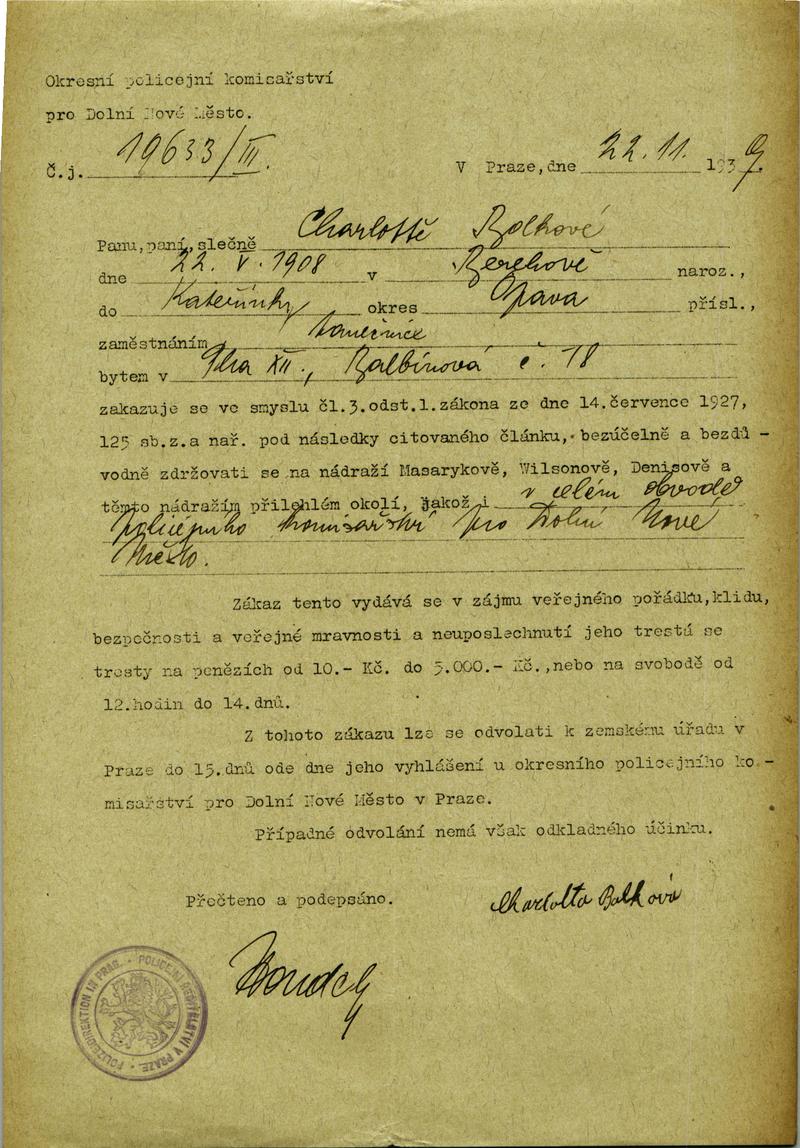 Okresní policejní komisařství
pro Dolní Nové Město.
Č.j. 19633/III.
V Praze, dne 22.11. 1939.
Panu, paní, slečně Charlottě Bolkové
dne 22. V. 1908 v Berehově naroz.,
do Kateřinky okres Opava přísl.,
zaměstnáním tanečnice
bytem v Praha XII., Balbínová č. 18
zakazuje se ve smyslu čl.3.odst.1.zákona ze dne 14.července 1927,
125 sb.z.a nař. pod následky citovaného článku, bezúčelně a bezdů -
vodně zdržovati se na nádraží Masarykově, Wilsonově, Denisově a
těmto nádražím přilehlém okolí, jakož i v celém obvodě
policejního komisařství pro Dolní Nové
Město.
Zákaz tento vydává se v zájmu veřejného pořádku,klidu,
bezpečnosti a veřejné mravnosti a neuposlechnutí jeho trestá se
tresty na penězích od 10.- Kč. do 5.000.- Kč.,nebo na svobodě od
12.hodin do 14.dnů.
Z tohoto zákazu lze se odvolati k zemskému úřadu v
Praze do 15.dnů ode dne jeho vyhlášení u okresního policejního ko -
misařství pro Dolní Nové Město v Praze.
Případné odvolání nemá však odkladného účinku.
Přečteno a podepsáno.
Charlotta Bolková
POLIZEIDIREKTION IN PRAG. POLICEJNÍ ŘEDITELSTVÍ V PRAZE.